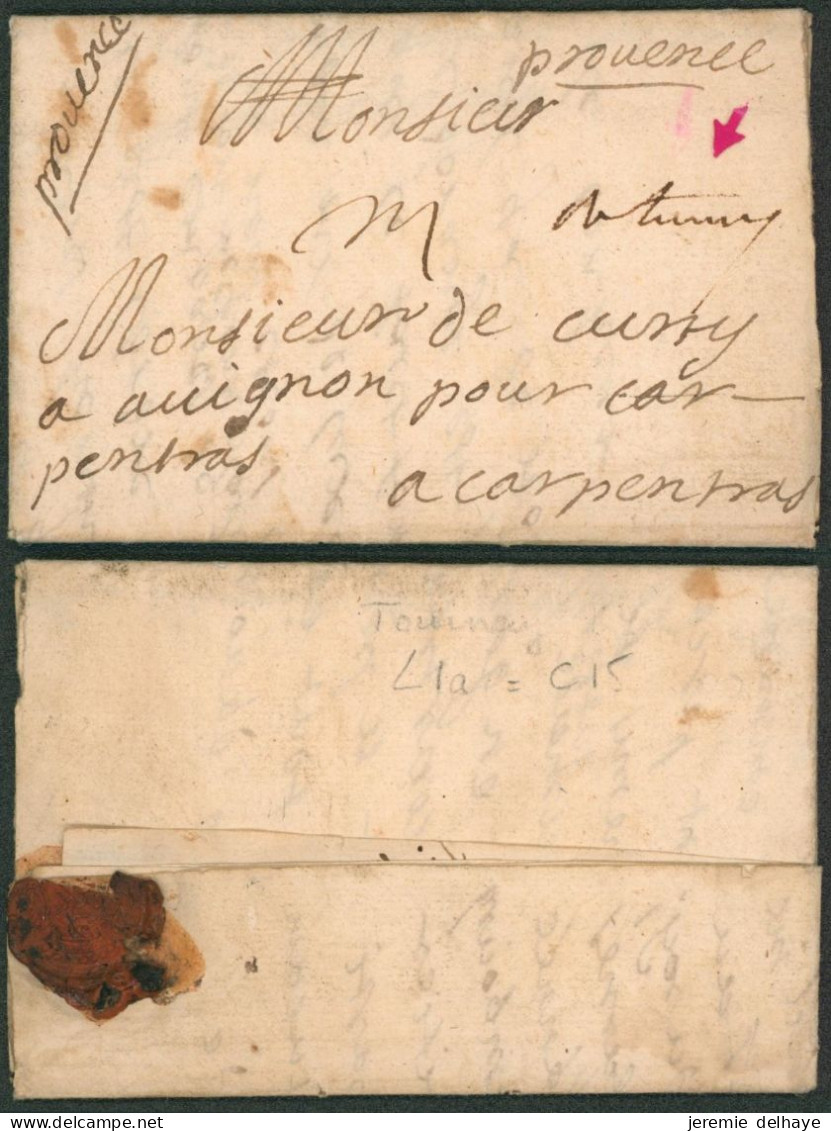 provence
provence
Monsieur
de turnay
Monsieur de cursy
a avignon pour car-
pentras
a carpentras
Tournay
L1a = C15
jeremie delhaye